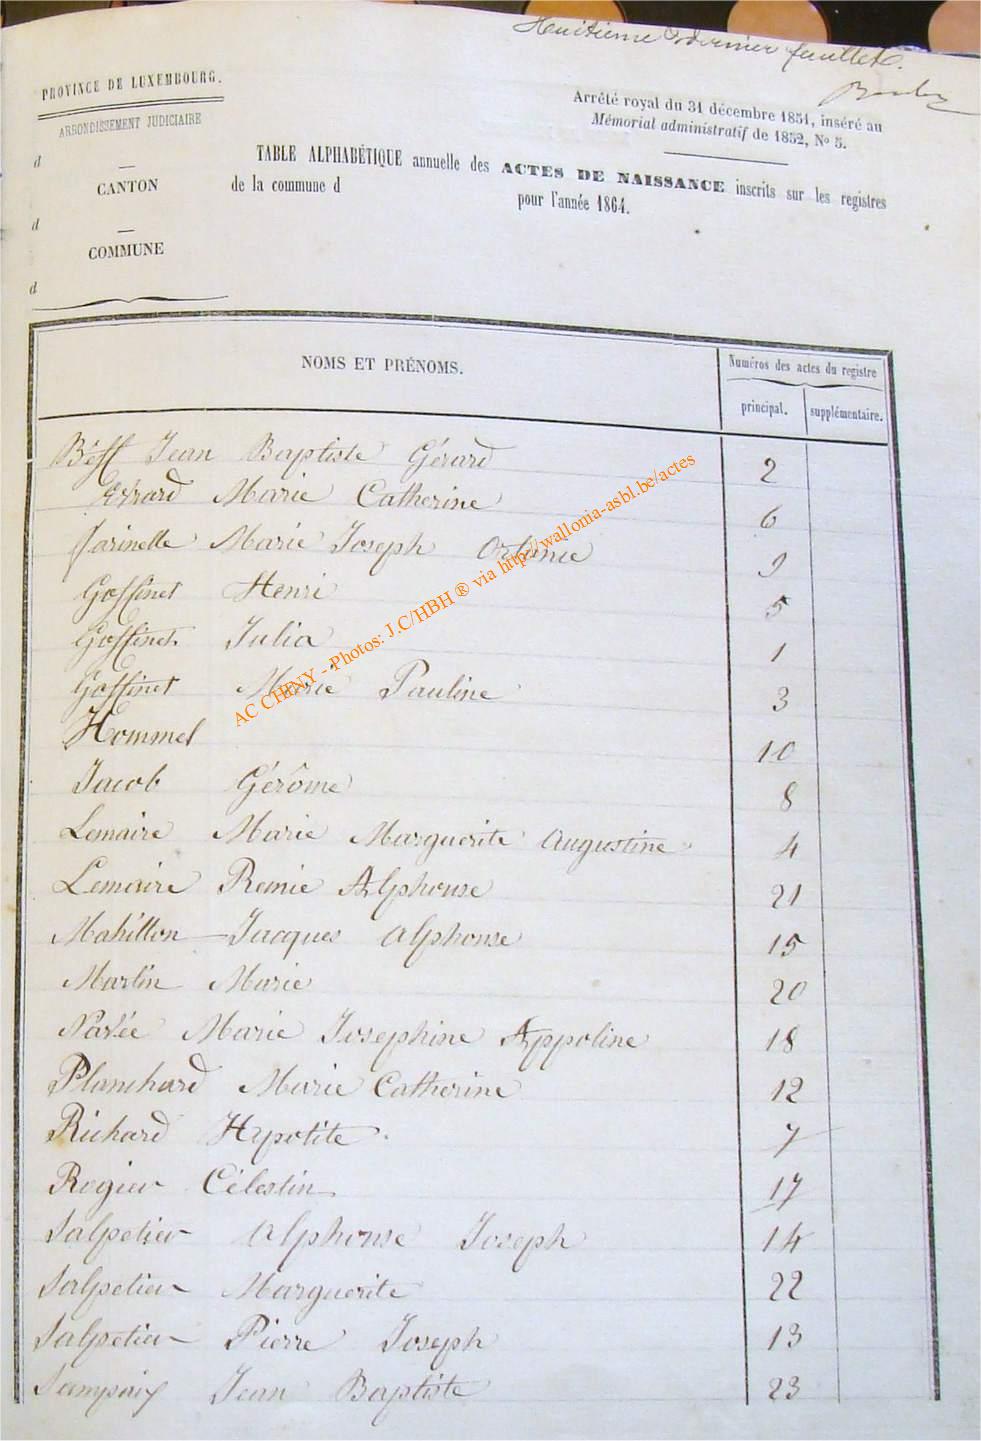 Huitième & dernier feuillet.
PROVINCE DE LUXEMBOURG.
ARRONDISSEMENT JUDICIAIRE
d
CANTON
d
COMMUNE
d
Arrêté royal du 31 décembre 1851, inséré au
Mémorial administratif de 1852, No 5.
TABLE ALPHABÉTIQUE annuelle des ACTES DE NAISSANCE inscrits sur les registres
de la commune d pour l'année 1864.
NOMS ET PRÉNOMS.
Numéros des actes du registre
principal. supplémentaire.
Jean Baptiste Gérard 2
Evrard Marie Catherine 6
Farinelle Marie Joseph 9
Goffinet Henri 5
Goffinet Julia 1
Goffinet Marie Pauline 3
Hommel 10
Jacob Gérôme 8
Lemaire Marie Marguerite Augustine 4
Lemaire Remie Alphonse 21
Mahillon Jacques Alphonse 15
Martin Marie 20
Marie Josephine Appoline 18
Planchard Marie Catherine 12
Richard Hypolite 7
Rogier Célestin 17
Salpetier Alphonse Joseph 14
Salpetier Marguerite 22
Salpetier Pierre Joseph 13
Sampaix Jean Baptiste 23
AC CHINY - Photos: J.C/HBH ® via http://wallonia-asbl.be/actes